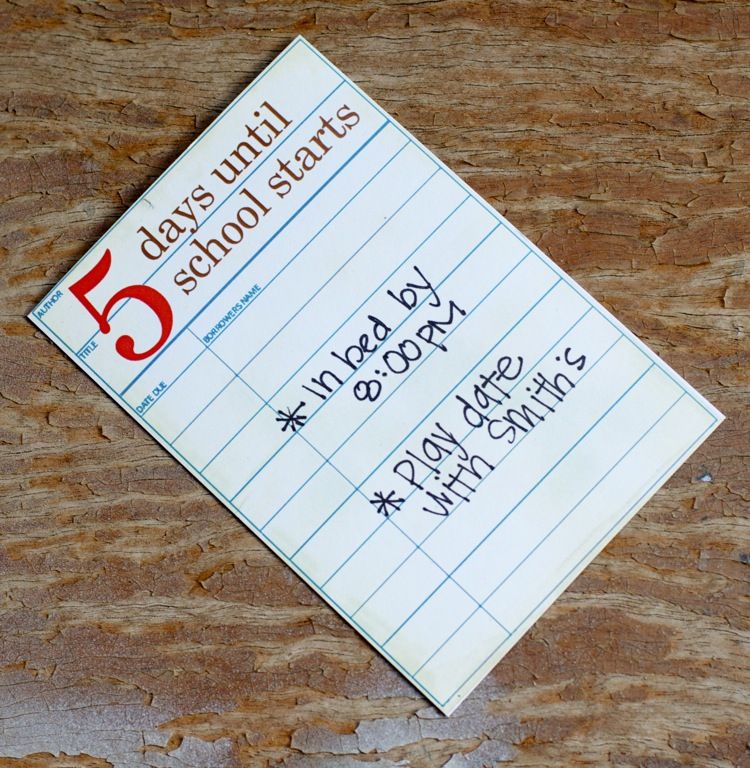 AUTHOR
TITLE
5 days until
school starts
DATE DUE
BORROWERS NAME
* In bed by
8:00PM
* Play date
with Smith's